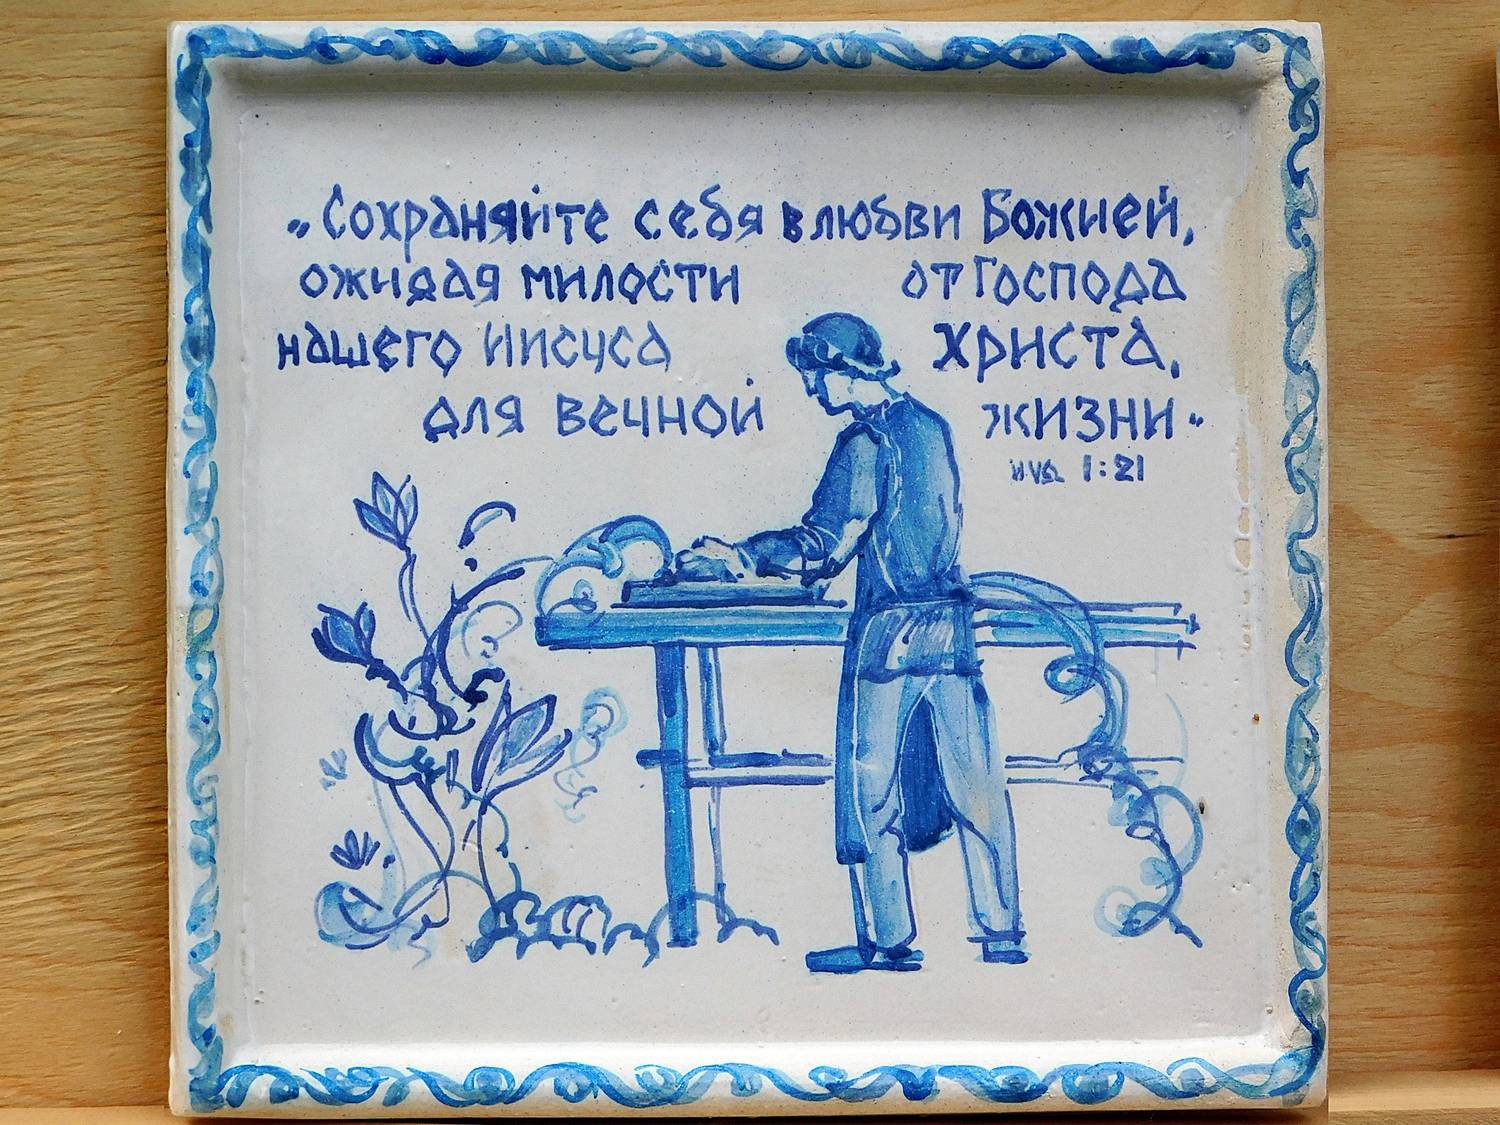 „Сохраняйте себя в любви Божией,
ожидая милости от Господа
нашего Иисуса Христа,
для вечной жизни"
Иуд. 1:21